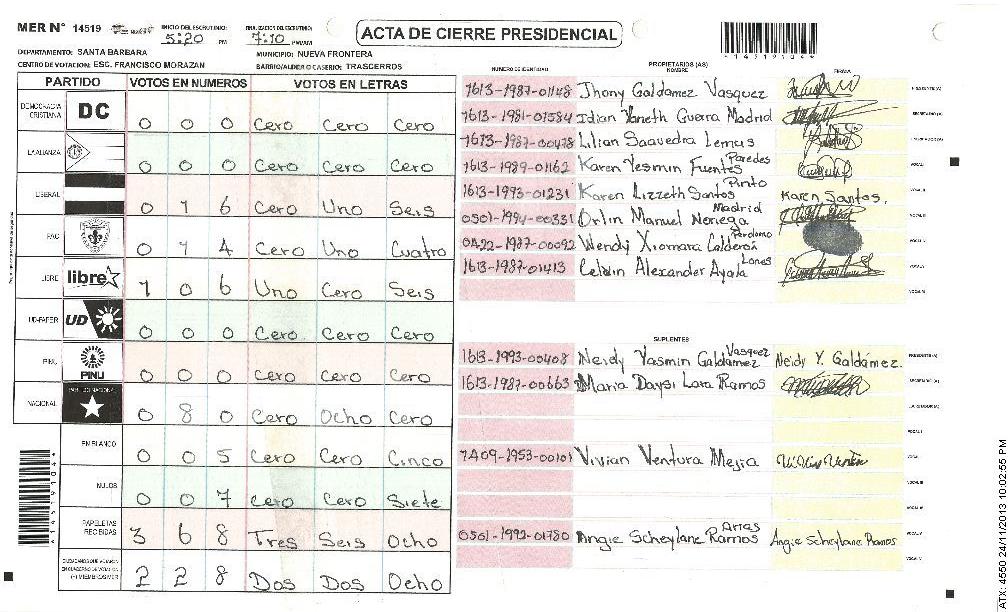 MER N° 14519
INICIO DEL ESCRUTINIO: 5:20 PM
FINALIZACION DEL ESCRUTINIO: 7:10 PM/AM
ACTA DE CIERRE PRESIDENCIAL
*14519104*
DEPARTAMENTO: SANTA BARBARA
MUNICIPIO: NUEVA FRONTERA
CENTRO DE VOTACION: ESC. FRANCISCO MORAZAN
BARRIO/ALDEA O CASERIO: TRASCERROS
PARTIDO VOTOS EN NUMEROS VOTOS EN LETRAS
DEMOCRACIA CRISTIANA DC 0 0 0 Cero Cero Cero
LA ALIANZA 0 0 0 Cero Cero Cero
LIBERAL 0 1 6 Cero Uno Seis
PAC 0 1 4 Cero Uno Cuatro
LIBRE libre 1 0 6 Uno Cero Seis
UD-FAPER UD 0 0 0 Cero Cero Cero
PINU PINU 0 0 0 Cero Cero Cero
NACIONAL PARTIDO NACIONAL 0 8 0 Cero Ocho Cero
EN BLANCO 0 0 5 Cero Cero Cinco
NULOS 0 0 7 Cero Cero Siete
PAPELETAS RECIBIDAS 3 6 8 Tres Seis Ocho
CIUDADANOS QUE VOTARON EN CUADERNO DE VOTACION (+) MIEMBROS MER 2 2 8 Dos Dos Ocho
*14519104*
NUMERO DE IDENTIDAD PROPIETARIOS (AS) NOMBRE FIRMA
1613-1987-01148 Jhony Galdamez Vasquez PRESIDENTE (A)
1613-1981-01584 Idian Yaneth Guerra Madrid SECRETARIO (A)
1613-1987-00478 Lilian Saavedra Lemus ESCRUTADOR (A)
1613-1989-01162 Karen Yesmin Fuentes Paredes VOCAL I
1613-1993-01231 Karen Lizzeth Santos Pinto Karen Santos. VOCAL II
0501-1994-00331 Orlin Manuel Noriega Madrid VOCAL III
0422-1987-00092 Wendy Xiomara Calderón Perdomo VOCAL IV
1613-1987-01413 Celdin Alexander Ayala Lones VOCAL V
VOCAL VI
SUPLENTES
1613-1993-00408 Neidy Yasmin Galdamez Vasquez Neidy Y. Galdámez. PRESIDENTE (A)
1613-1987-00663 Maria Daysi Lara Ramos SECRETARIO (A)
ESCRUTADOR (A)
VOCAL I
1409-1953-00101 Vivian Ventura Mejia Vivian Ventura VOCAL II
VOCAL III
VOCAL IV
0501-1992-01780 Angie Scheylane Ramos Arias Angie Scheylane Ramos VOCAL V
VOCAL VI
ATX: 4550 24/11/2013 10:02:55 PM